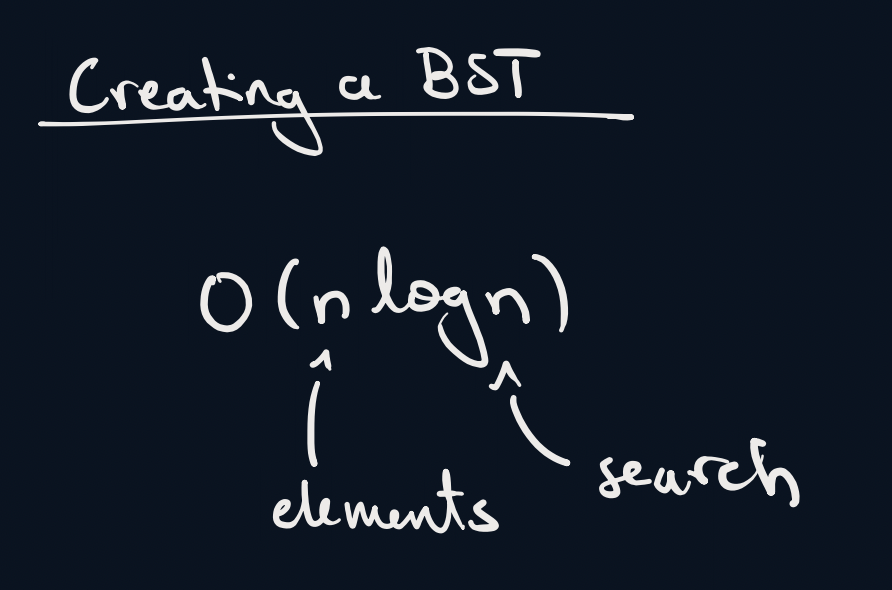 Creating a BST
O(n logn)
elements
search